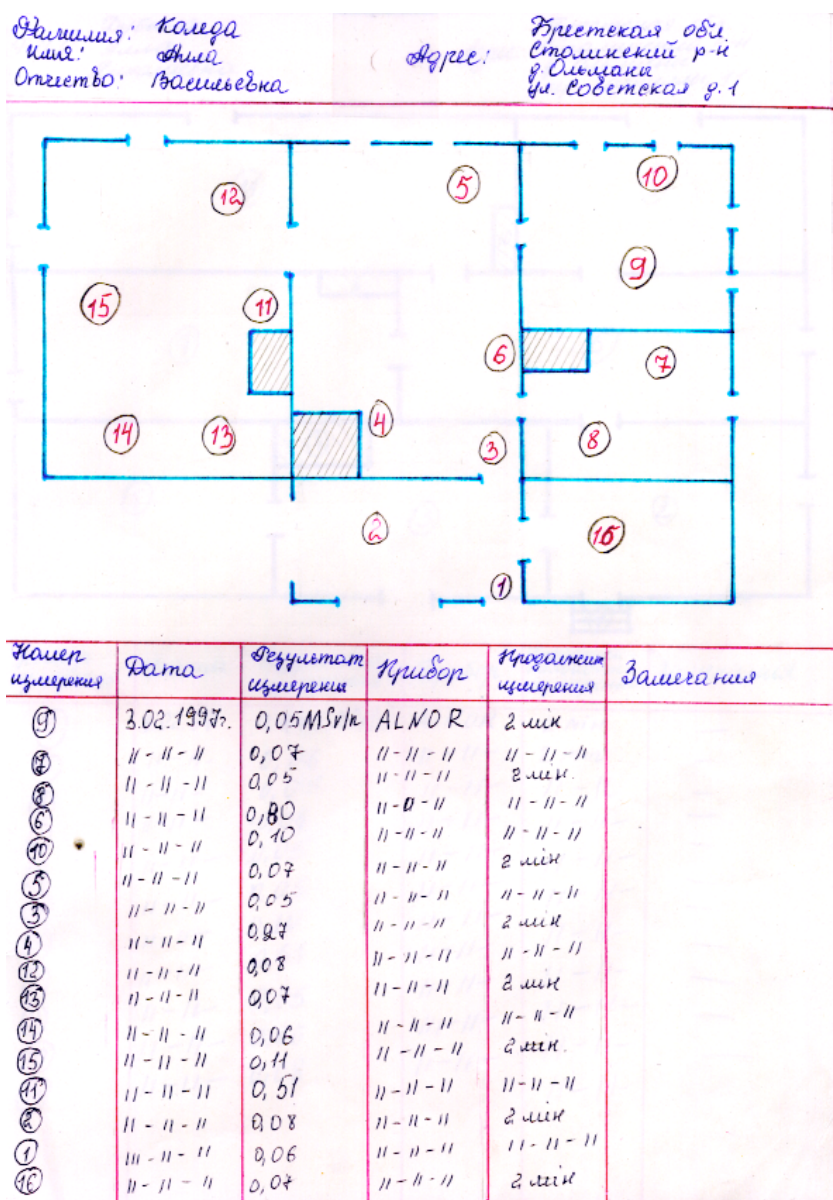 Фамилия: Коледа
Имя: Анна
Отчество: Васильевна
Адрес: Брестская обл.
Столинский р-н
д. Ольманы
ул. Советская д. 1
12
5
10
9
15
11
6
7
14
13
4
3
8
2
16
1
Номер измерения Дата Результат измерения Прибор Продолжит измерения Замечания
9 3.02.1997г. 0,05 MSv/h ALNOR 2 мін
7 "-"-" 0,07 "-"-" "-"-"
8 "-"-" 0,05 "-"-" 2 мін.
6 "-"-" 0,80 "-"-" "-"-"
10 "-"-" 0,10 "-"-" "-"-"
5 "-"-" 0,07 "-"-" 2 мін
3 "-"-" 0,05 "-"-" "-"-"
4 "-"-" 0,27 "-"-" 2 мін
12 "-"-" 0,08 "-"-" "-"-"
13 "-"-" 0,07 "-"-" 2 мін
14 "-"-" 0,06 "-"-" "-"-"
15 "-"-" 0,11 "-"-" 2 мін.
11 "-"-" 0,51 "-"-" "-"-"
2 "-"-" 0,08 "-"-" 2 мін
1 "-"-" 0,06 "-"-" "-"-"
16 "-"-" 0,07 "-"-" 2 мін